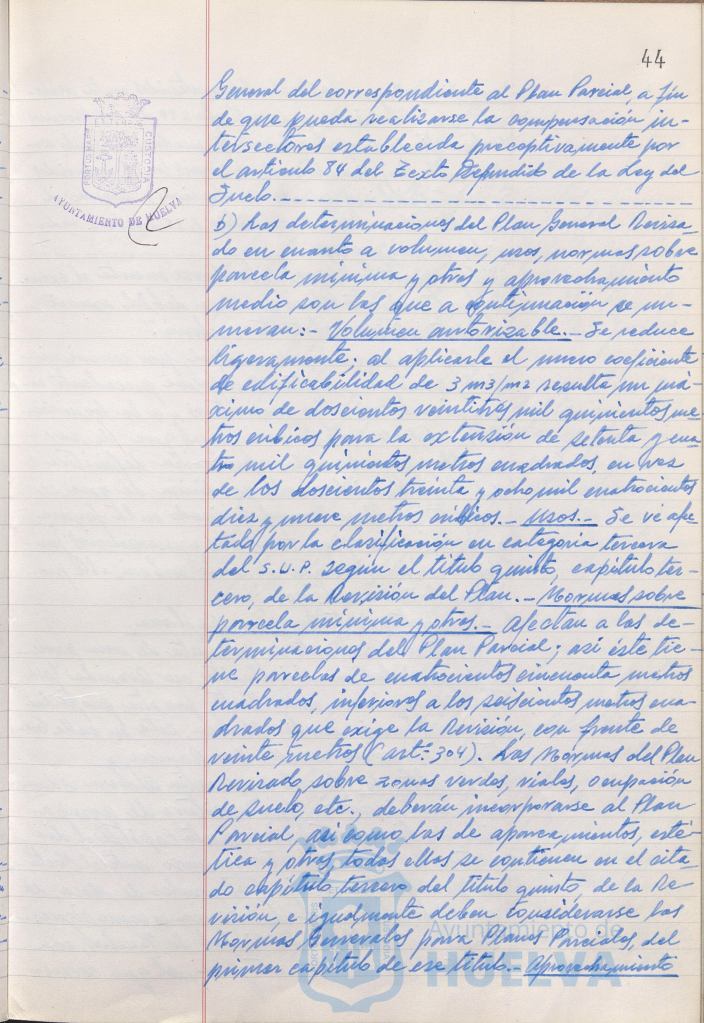 44
General del correspondiente al Plan Parcial, a fin
de que pueda realizarse la compensación in-
tersectores establecida preceptivamente por
el artículo 84 del Texto Refundido de la Ley del
Suelo.
b) Las determinaciones del Plan General Revisa-
do en cuanto a volumen, usos, normas sobre
parcela mínima y otras y aprovechamiento
medio son las que a continuación se enu-
meran:- Volumen autorizable.- Se reduce
ligeramente: al aplicarle el nuevo coeficiente
de edificabilidad de 3 m3/m2 resulta un má-
ximo de doscientos veintitrés mil quinientos me-
tros cúbicos para la extensión de setenta y cua-
tro mil quinientos metros cuadrados, en vez
de los doscientos treinta y ocho mil cuatrocientos
diez y nueve metros cúbicos.- Usos.- Se vé afec-
tado por la clasificación en categoría tercera
del S.U.P. según el título quinto, capítulo ter-
cero, de la Revisión del Plan.- Normas sobre
parcela mínima y otras.- Afectan a las de-
terminaciones del Plan Parcial; así éste tie-
ne parcelas de cuatrocientos cincuenta metros
cuadrados, inferiores a los seiscientos metros cua-
drados que exige la Revisión, con frente de
veinte metros (artº 304). Las Normas del Plan
Revisado sobre zonas verdes, viales, ocupación
de suelo, etc., deberán incorporarse al Plan
Parcial, así como las de aparcamientos, esté-
tica y otras, todas ellas se contienen en el cita-
do capítulo tercero del título quinto, de la Re-
visión, e igualmente deben considerarse las
Normas Generales para Planes Parciales, del
primer capítulo de ese título.- Aprovechamiento
PORTUS MARIS
ET TERRE
CUSTODIA
AYUNTAMIENTO DE HUELVA
Ayuntamiento de
HUELVA